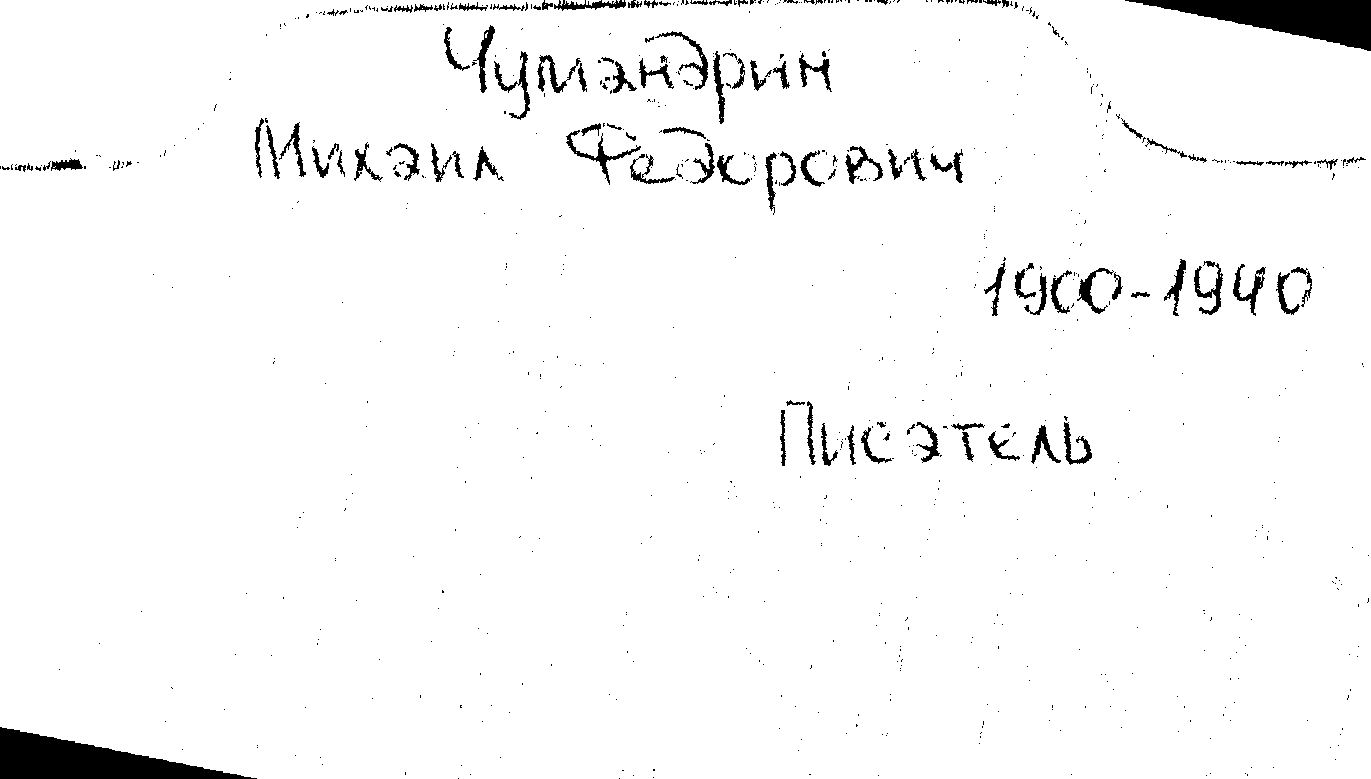 Чумандрин
Михаил Федорович
1900-1940
Писатель